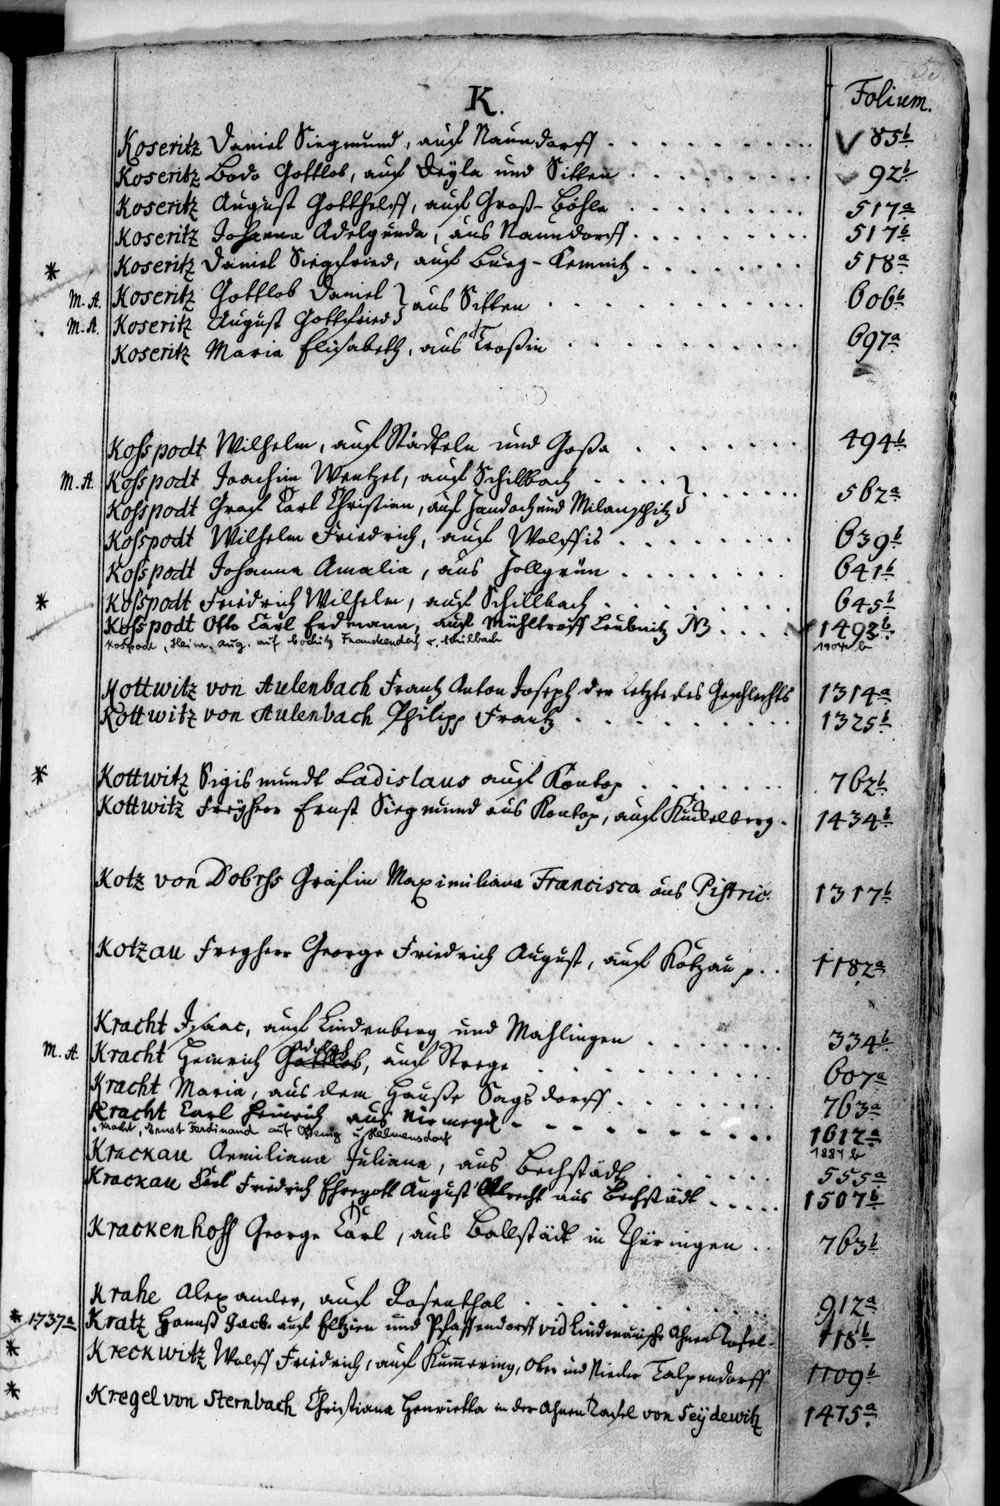 K.
Folium.
Koseritz Daniel Siegmund, auf Naundorff . . . . . . . 85b
Koseritz Bodo Gottlob, auf Deÿla und Sitten . . . . . . 92b
Koseritz August Gotthelff, auf Groß-Böhla . . . . . . 517a
Koseritz Johanna Adelgunda, aus Naundorff . . . . . . 517b
* Koseritz Daniel Siegfried, auf Burg-Kemnitz . . . . . . 518a
M.A. Koseritz Gottlob Daniel } aus Sitten . . . . . . 606b
M.A. Koseritz August Gottfried }
Koseritz Maria Elisabeth, aus Troßin . . . . . . 697a
Kosspodt Wilhelm, auf Städteln und Goßa . . . . . . 494b
M.A. Kosspodt Joachim Wentzel, auf Schilbach . . . . }
Kosspodt Graf Carl Christian, auf und Milanschitz } . . . . 562a
Kosspodt Wilhelm Friedrich, auf Wolffis . . . . . . 639b
Kosspodt Johanna Amalia, aus Zollgrün . . . . . . 641b
* Kosspodt Friedrich Wilhelm, auf Schillbach . . . . . . 645b
Kosspodt Otto Carl Erdmann, auf Mühltroff Leubnitz NB . . . . 1492b
Kospodt, Heinr. Aug. auf Franckendorf u. Schilbach 1904b
Kottwitz von Aulenbach Frantz Anton Joseph der letzte des Geschlechts 1314a
Kottwitz von Aulenbach Philipp Frantz . . . . . . 1325b
* Kottwitz Sigismundt Ladislaus auf Kontop . . . . . . 762b
Kottwitz Freÿherr Ernst Siegmund aus Kontop, auf Kuckelberg . 1434b
Kotz von Dobrhs Gräfin Maximiliana Francisca aus Pistric. 1317b
Kotzau Freyherr George Friedrich August, auf Kotzau p. . . 1182a
Kracht Isaac, auf Lindenberg und Mahlingen . . . . . . 334b
M.A. Kracht Heinrich Gottlob, auf Steege . . . . . . 607a
Kracht Maria, aus dem Hauße Sagsdorff . . . . . . 763a
Kracht Carl Heinrich aus Niemegk . . . . . . 1612a
Kracht, Ernst Ferdinand auf u. Helmensdorf 1887b
Krackau Aemiliana Juliana, aus Bechstädt . . . . . . 555a
Krackau Carl Friedrich Ehregott August Albrecht aus Bechstädt . . . . . 1507b
Krackenhoff George Carl, aus Ballstädt in Thüringen . . 763b
Krahe Alexander, auf Rosenthal . . . . . . 912a
* 1737a Kratz Hannß Jacb. auf Eltzien und Pfaffendorff vid Lindenauische Ahnen Tafel . 118b
* Kreckwitz Wolff Friedrich, auf Kummering, Ober und Nieder Talpendorff 1109b
* Kregel von Sternbach Christiana Henrietta in der Ahnen Tafel von Seÿdewitz 1475a